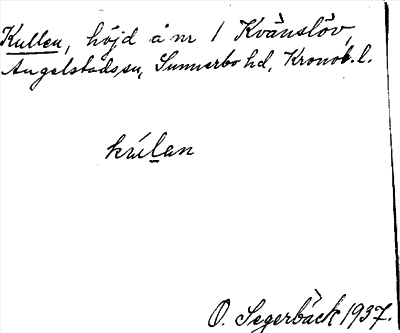 Kullen, höjd å nr 1 Kvänslöv,
Angelstads sn, Sunnerbo hd, Kronob. l.
kúlan
O. Segerbäck 1937.